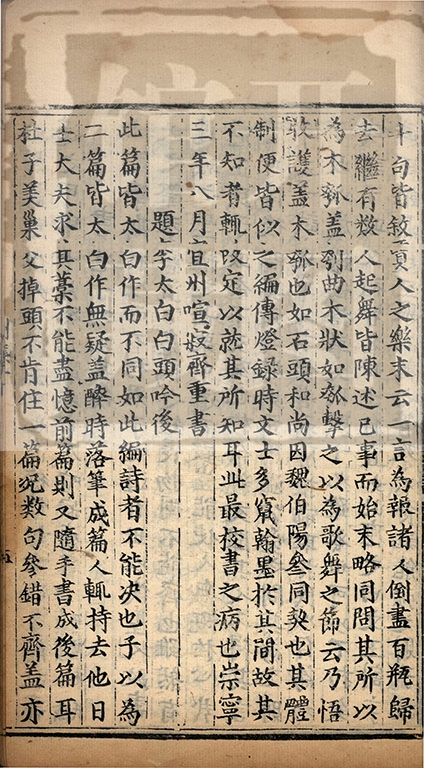 十句皆敘賓人之樂末云一言為報諸人倒盡百瓶歸
去繼有數人起舞皆陳述已事而始末略同問其所以
為木瓠蓋刳曲木狀如瓠擊之以為歌舞之節云乃悟
敔護蓋木瓠也如石頭和尚因魏伯陽參同契也其體
制便皆似之編傳燈録時文士多竄翰墨於其間故其
不知者輒改定以就其所知耳此最校書之病也崇寧
三年八月宜州喧寂齋重書
題李太白白頭吟後
此篇皆太白作而不同如此編詩者不能决也予以為
二篇皆太白作無疑蓋醉時落筆成篇人輒持去他日
士大夫求其藁不能盡憶前篇則又隨手書成後篇耳
杜子美巢父掉頭不肯住一篇况數句參錯不齊蓋亦